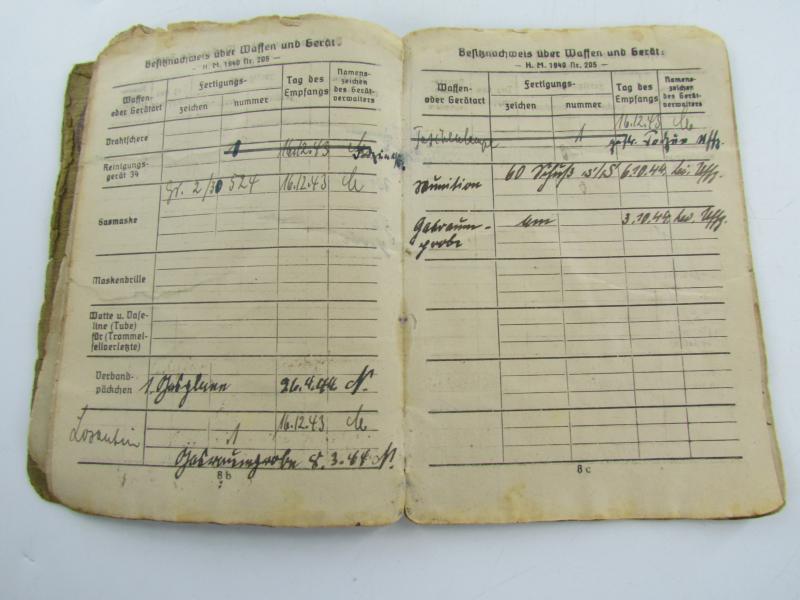 Besitznachweis über Waffen und Gerät:
— H. M. 1940 Nr. 205 —
Waffen- oder Gerätart
Fertigungs-
zeichen
nummer
Tag des Empfangs
Namens- zeichen des Gerät- verwalters
Drahtschere
1 16.12.43
Reinigungs- gerät 34
Gr. 2/30 524 16.12.43
Gasmaske
Maskenbrille
Watte u. Vase- line (Tube) für (Trommel- fellverletzte)
Verband- päckchen
1 Gasplane 26.4.44 N.
Losantin 1 16.12.43
Gasraumprobe 8.3.44 N.
8 b
Besitznachweis über Waffen und Gerät:
— H. M. 1940 Nr. 205 —
Waffen- oder Gerätart
Fertigungs-
zeichen
nummer
Tag des Empfangs
Namens- zeichen des Gerät- verwalters
Taschenlampe 1 16.12.43
Munition 60 Schuß 6.10.44 Uffz.
Gasraum- probe 3.10.44 Uffz.
8 c